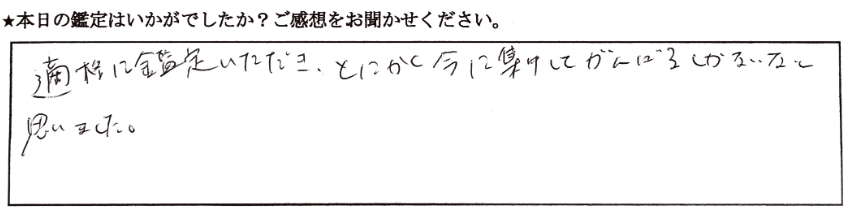 ★本日の鑑定はいかがでしたか？ご感想をお聞かせください。
適格に鑑定いただき、とにかく今に集中してがんばるしかないなと
思いました。